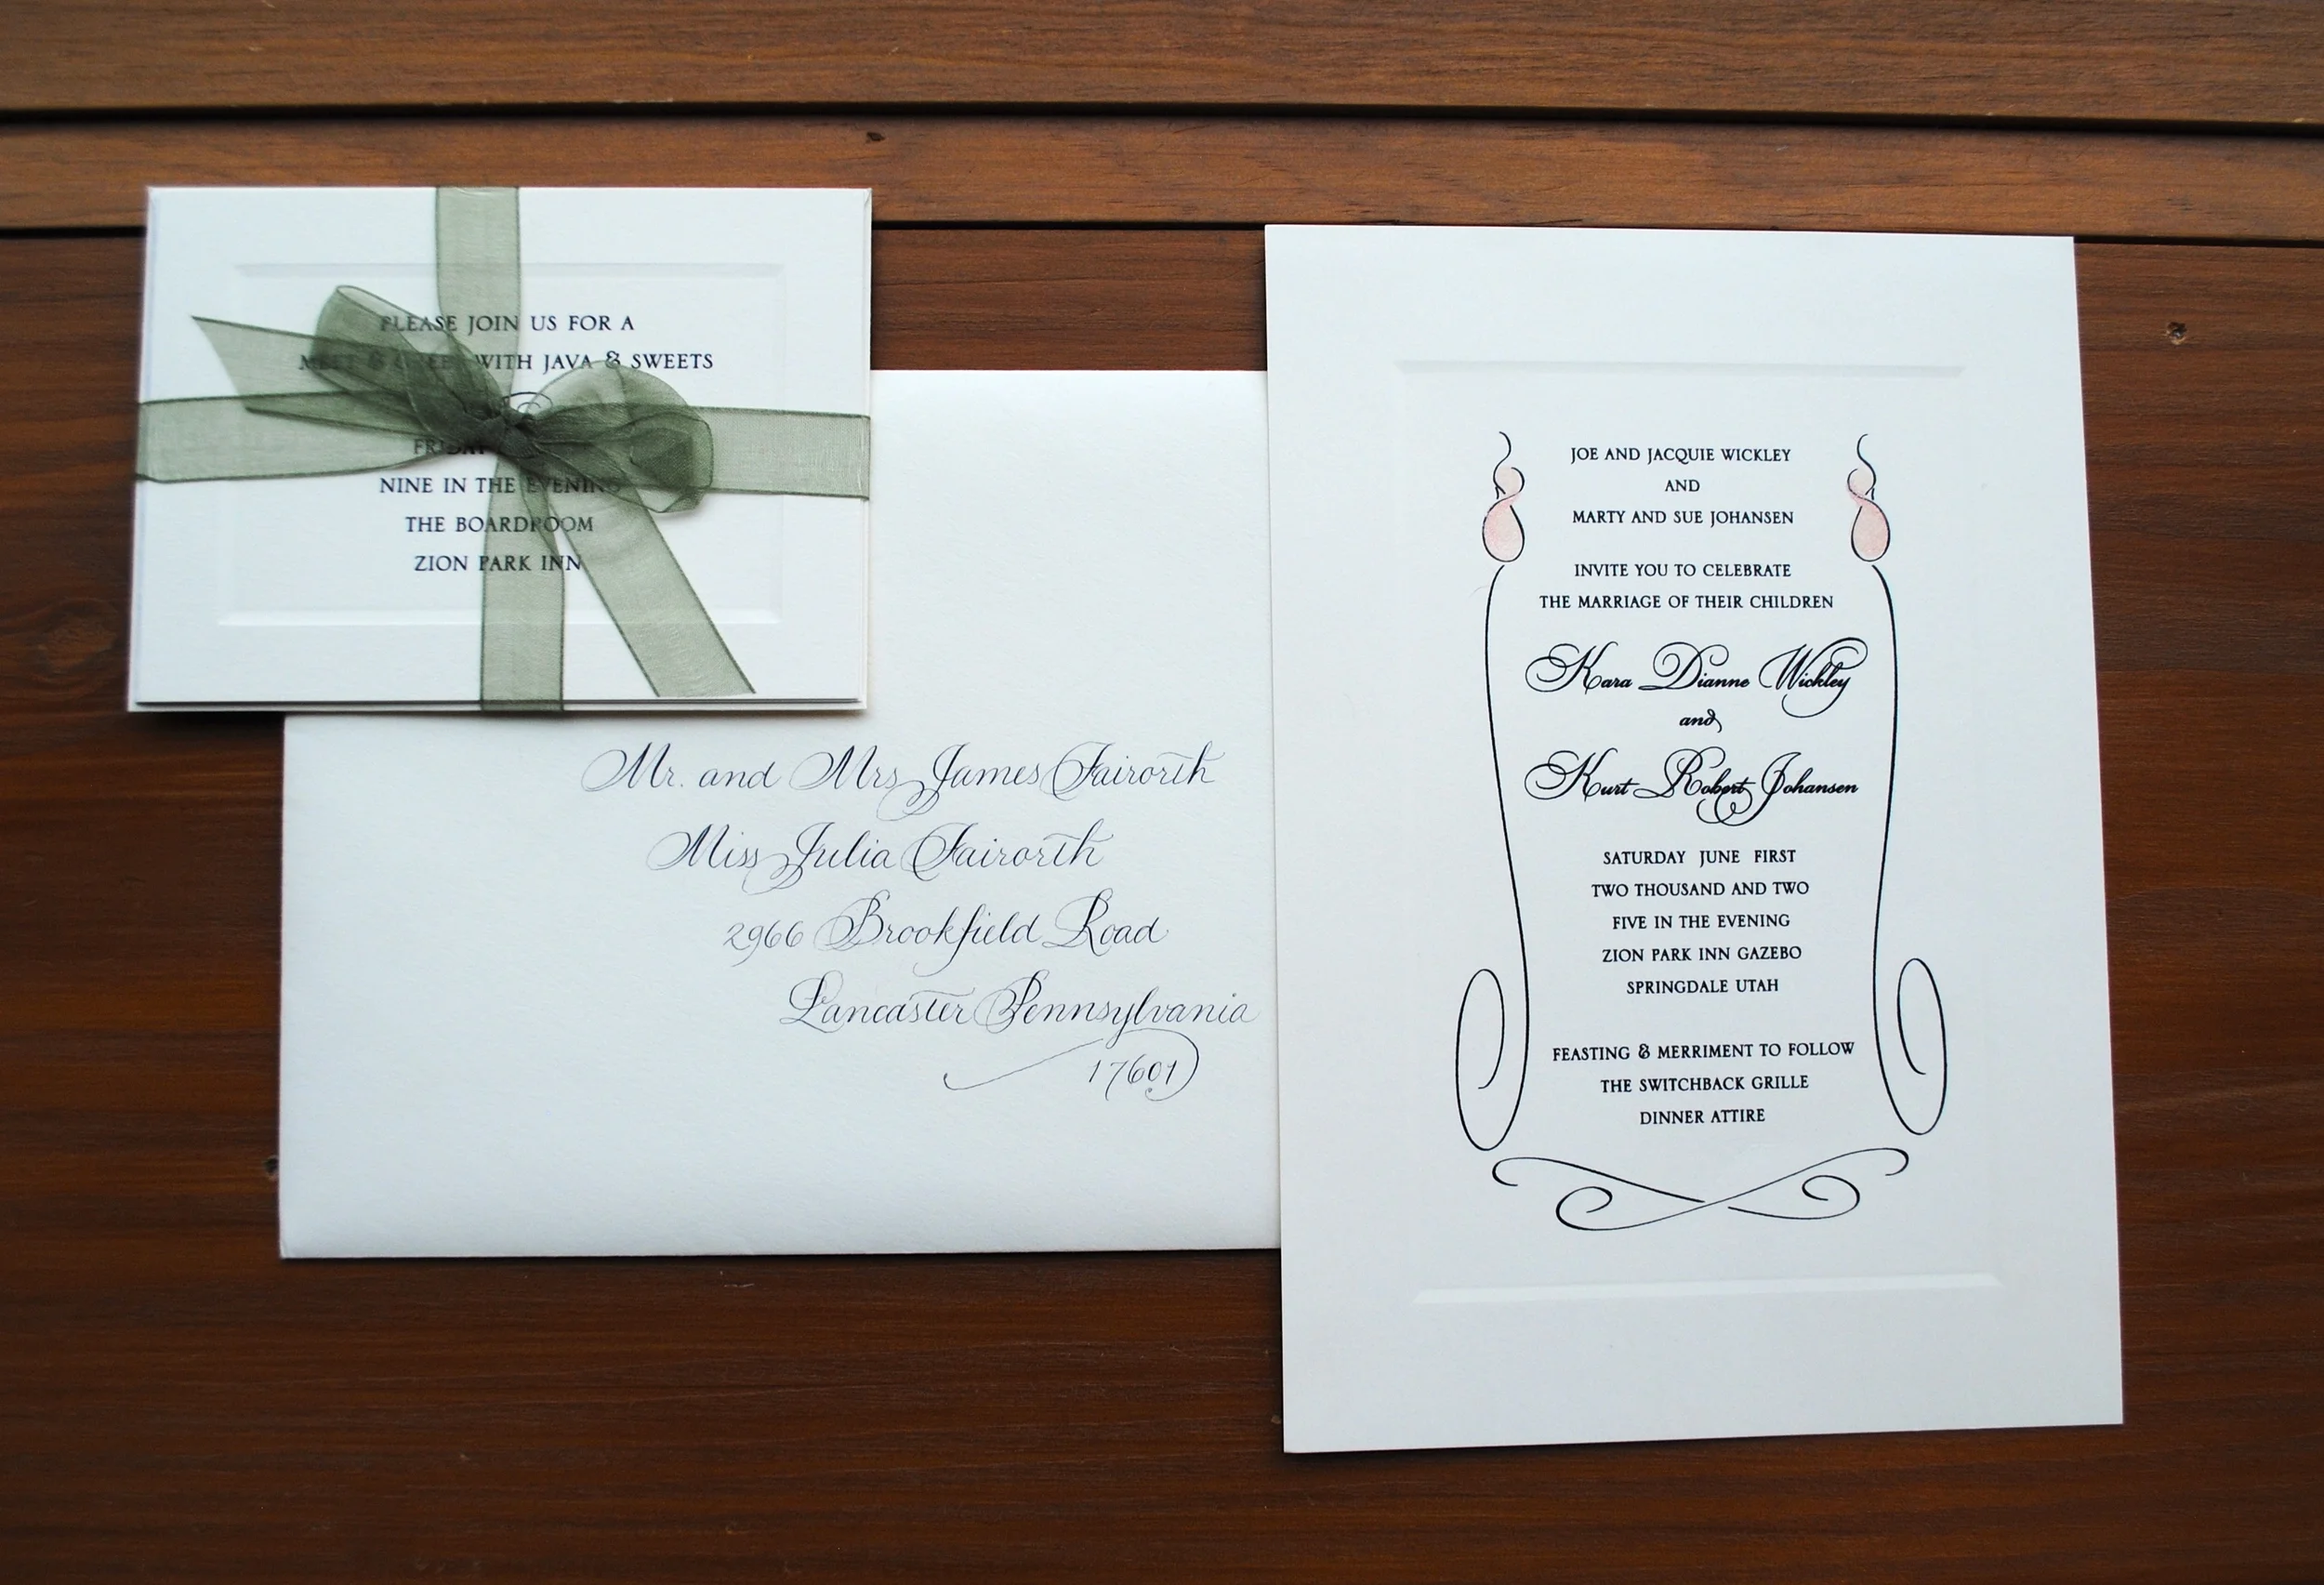 PLEASE JOIN US FOR A
MEET & GREET WITH JAVA & SWEETS
FRIDAY
NINE IN THE EVENING
THE BOARDROOM
ZION PARK INN
Mr. and Mrs James Fairorth
Miss Julia Fairorth
2966 Brookfield Road
Lancaster Pennsylvania
17601
JOE AND JACQUIE WICKLEY
AND
MARTY AND SUE JOHANSEN
INVITE YOU TO CELEBRATE
THE MARRIAGE OF THEIR CHILDREN
Kara Dianne Wickley
and
Kurt Robert Johansen
SATURDAY JUNE FIRST
TWO THOUSAND AND TWO
FIVE IN THE EVENING
ZION PARK INN GAZEBO
SPRINGDALE UTAH
FEASTING & MERRIMENT TO FOLLOW
THE SWITCHBACK GRILLE
DINNER ATTIRE